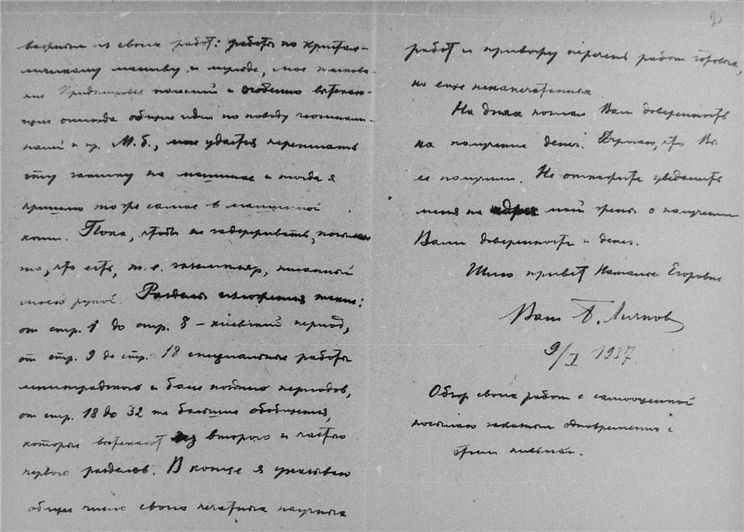 из своих работ: работы по кристал-
лическому массиву и
и особенно вытекаю-
щие отсюда общие идеи по поводу
и пр. М.б., мне удастся переписать
эту записку на машинке и тогда я
пришлю то же самое в машинной
копии. Пока, чтобы не задерживать, посылаю
то, что есть, т.е. экземпляр, писанный
моею рукой. Разделы изложения такие:
от стр. 1 до стр. 8 – киевский период,
от стр. 9 до стр. 18 специальные работы
ленинградского и более позднего периодов,
от стр. 18 до 32 те большие обобщения,
которые вытекают из второго и частью
первого разделов. В конце я указываю
общее число своих печатных научных
2
работ и привожу перечень работ готовых,
но еще ненапечатанных.
На днях послал Вам доверенность
на получение денег. Думаю, что Вы
ее получили. Не откажите уведомить
меня на адрес моей жены о получении
Вами доверенности и денег.
Шлю привет Наталье Егоровне
Ваш Б. Личков
9/I 1937.
Обзор своих работ с самооценкой
посылаю заказным одновременно с
этим письмом.